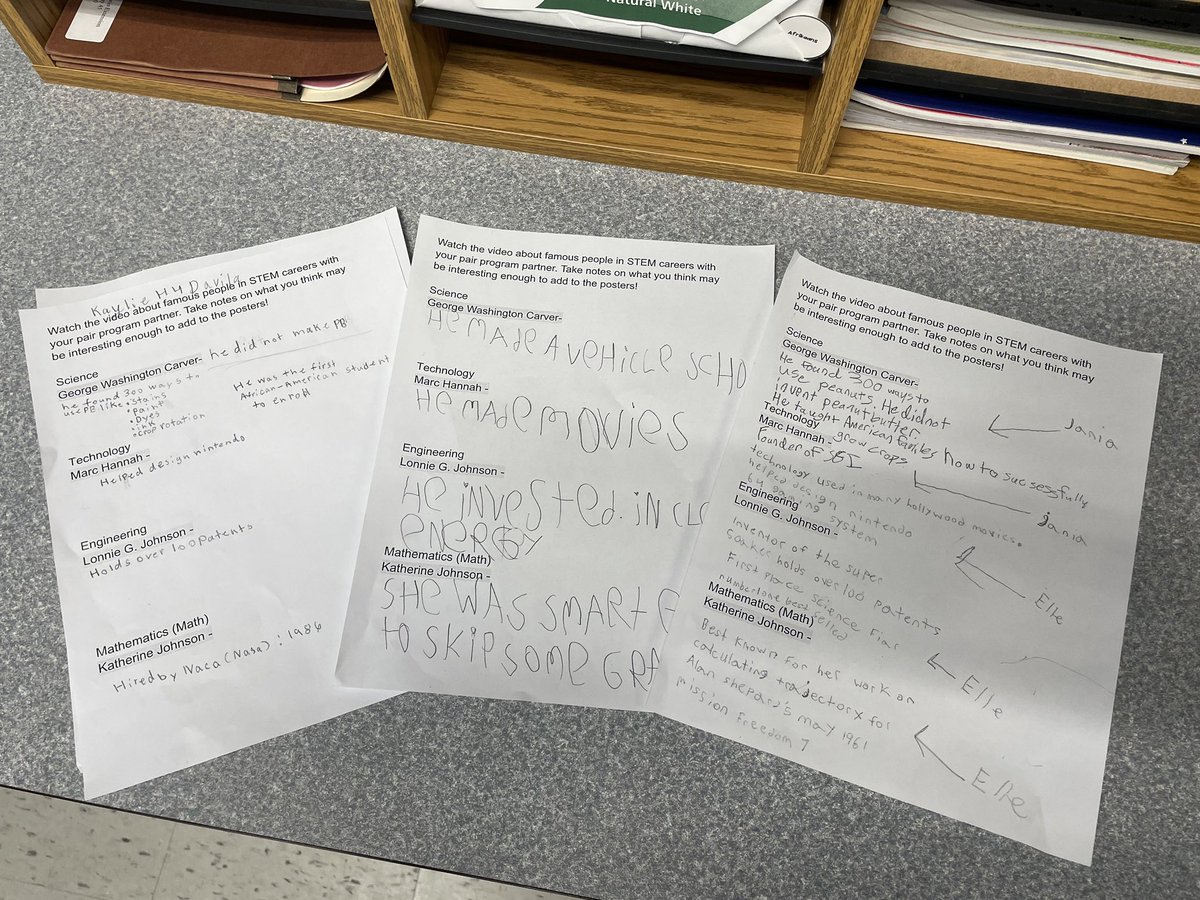 Natural White
Afrikaans
Kaylie H Davila
Watch the video about famous people in STEM careers with
your pair program partner. Take notes on what you think may
be interesting enough to add to the posters!
Science
George Washington Carver- he did not make PB
he found 300 ways to
use PB like: • stains
• Paint
• Dyes
• ink
• crop rotation
He was the first
African-American student
to enroll
Technology
Marc Hannah -
Helped design nintendo
Engineering
Lonnie G. Johnson -
Holds over 100 patents
Mathematics (Math)
Katherine Johnson -
Hired by Naca (Nasa) : 1986
Watch the video about famous people in STEM careers with
your pair program partner. Take notes on what you think may
be interesting enough to add to the posters!
Science
George Washington Carver-
He MADE A VEHICLE SCHO
Technology
Marc Hannah -
He MADE MOVIES
Engineering
Lonnie G. Johnson -
He invested in CLE
ENERGY
Mathematics (Math)
Katherine Johnson -
SHe WAS SMART E
to SKIP SOME GRA
Watch the video about famous people in STEM careers with
your pair program partner. Take notes on what you think may
be interesting enough to add to the posters!
Science
George Washington Carver-
He found 300 ways to
use peanuts. He did not
invent peanut butter.
He taught American families how to successfully
grow crops
Jania
Technology
Marc Hannah -
founder of SGI
jania
technology used in many hollywood movies.
helped design nintendo
64 gaming system
Elle
Engineering
Lonnie G. Johnson -
Inventor of the super
soaker holds over 100 patents
First Place science Fiar
number one best selled
Elle
Mathematics (Math)
Katherine Johnson -
Best Known for her work on
calculating trajectory for
Alan shepard's may 1961
mission Freedom 7
Elle